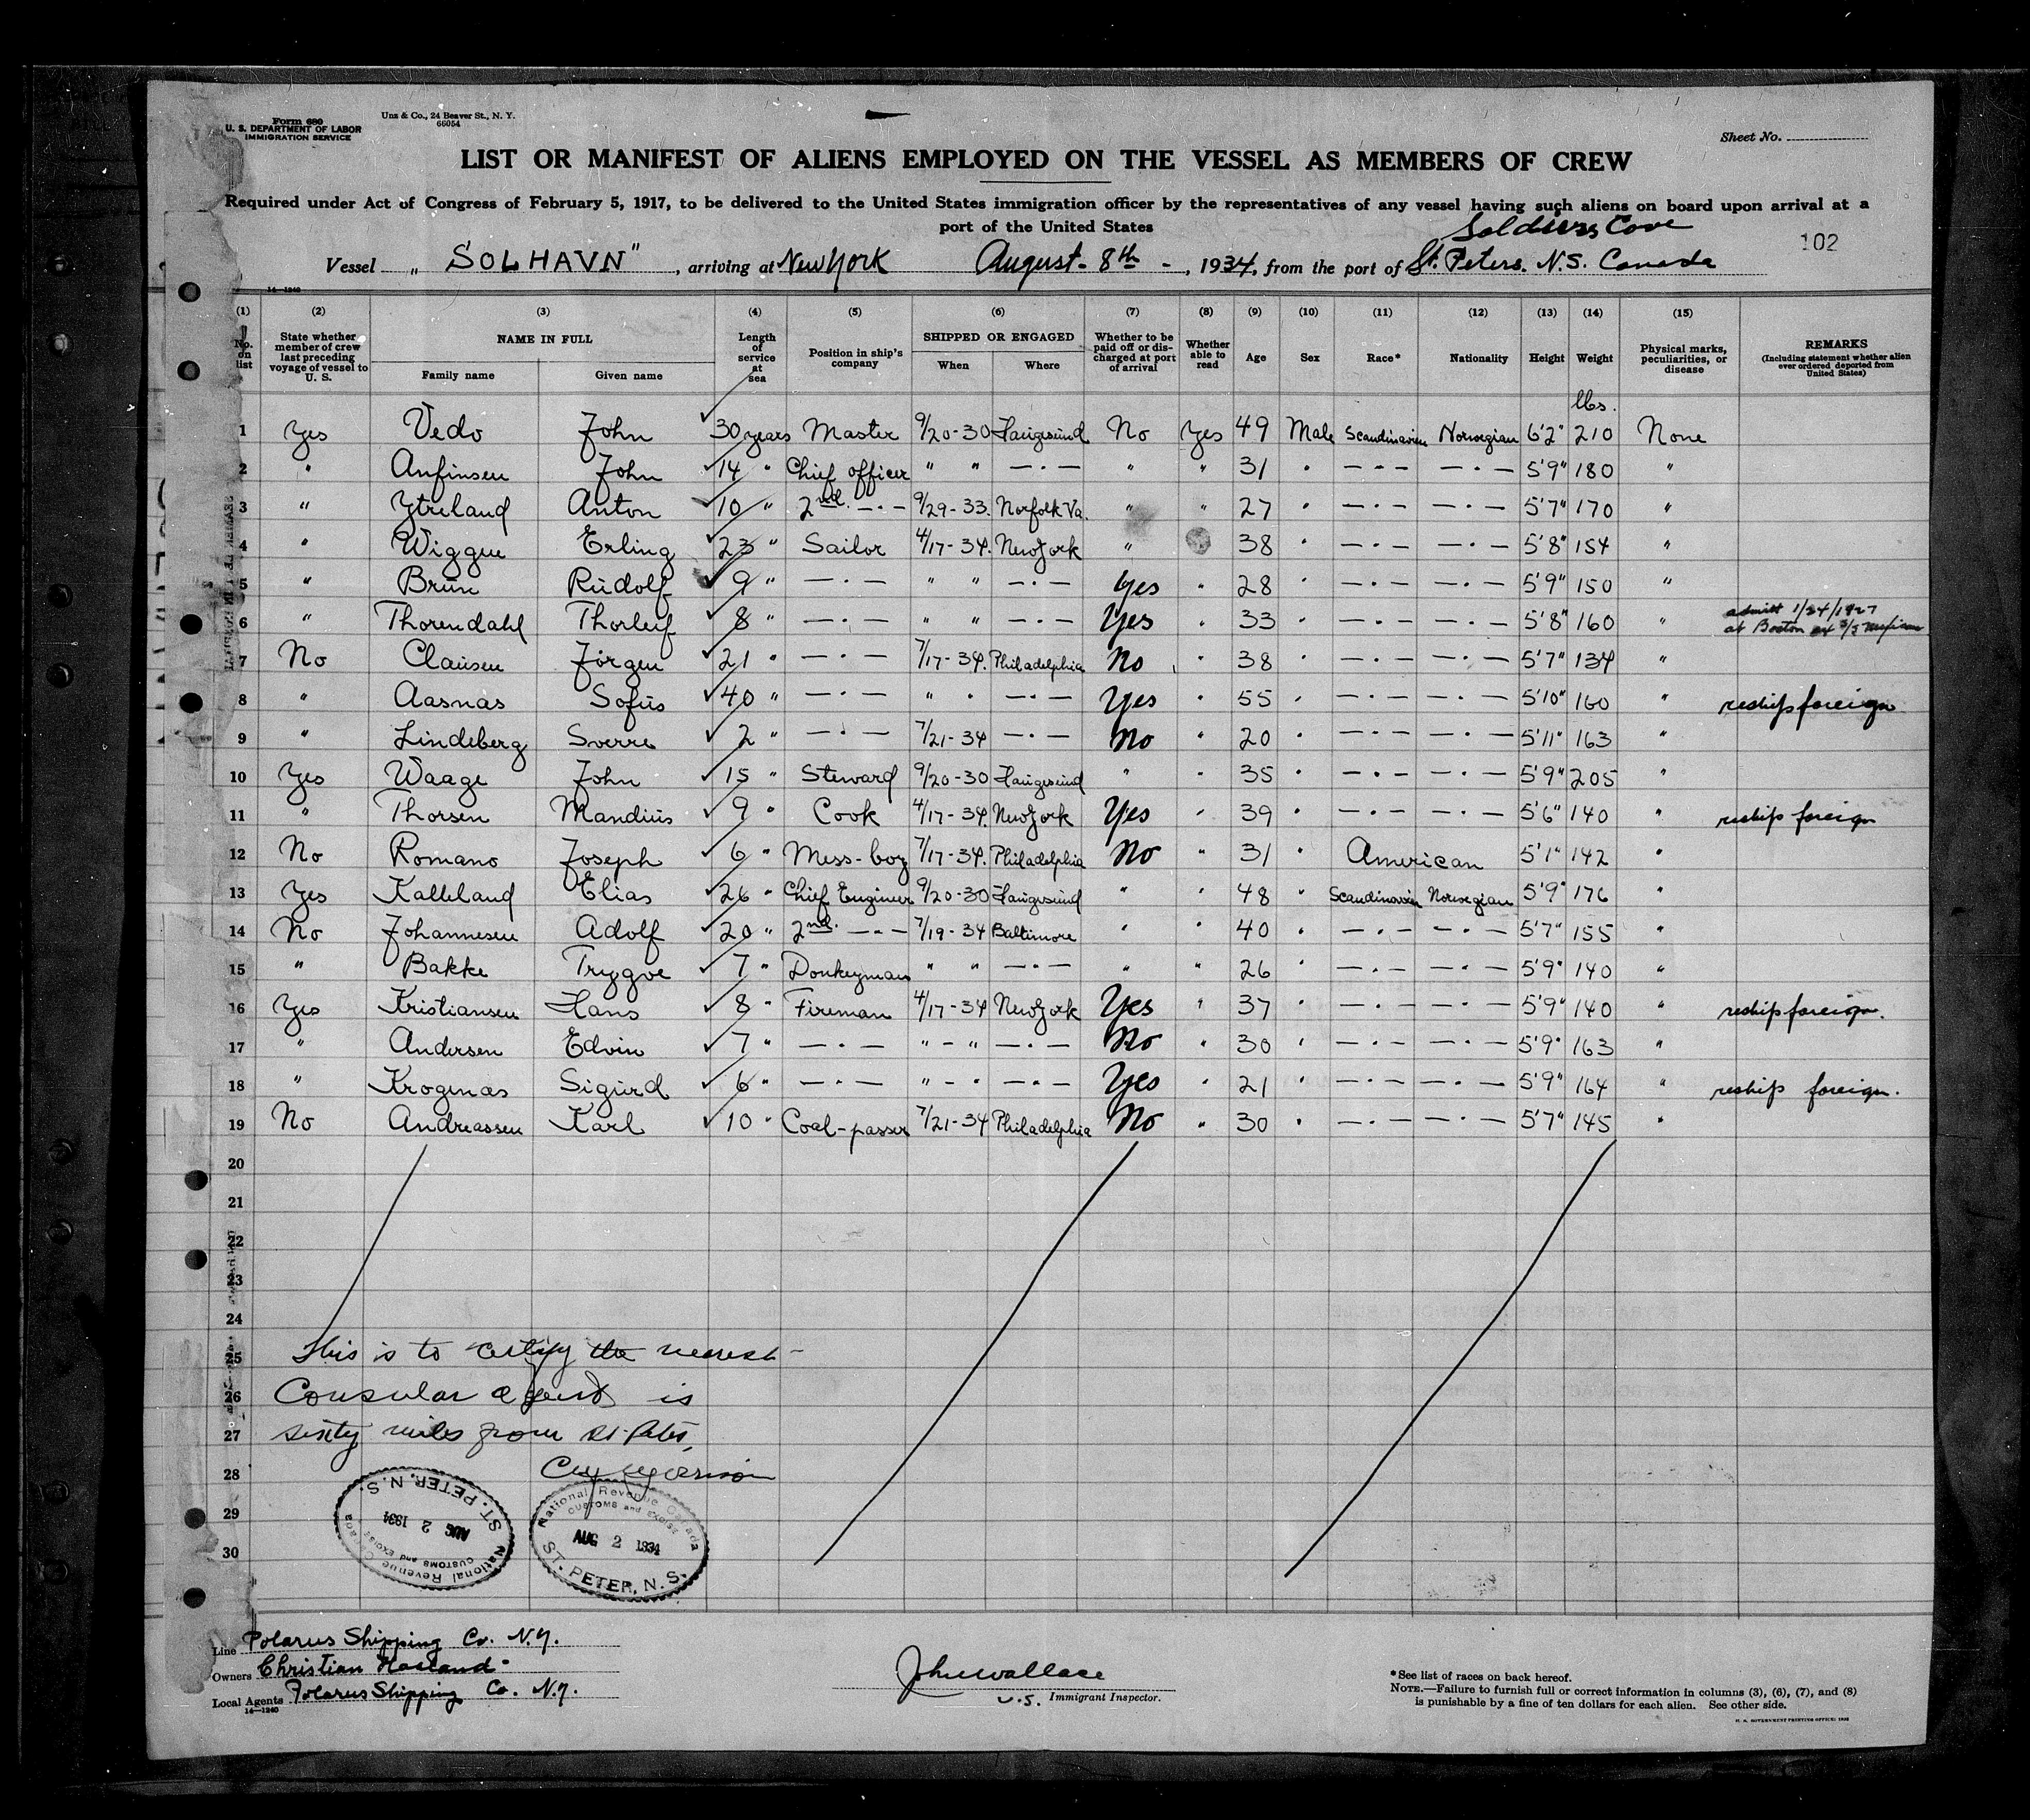 Form 680
U. S. DEPARTMENT OF LABOR
IMMIGRATION SERVICE
Unz & Co., 24 Beaver St., N. Y.
66054
Sheet No.
LIST OR MANIFEST OF ALIENS EMPLOYED ON THE VESSEL AS MEMBERS OF CREW
Required under Act of Congress of February 5, 1917, to be delivered to the United States immigration officer by the representatives of any vessel having such aliens on board upon arrival at a
port of the United States
Soldiers Cove
102
Vessel "SOLHAVN", arriving at New York August 8th, 1934, from the port of St. Peters. N.S. Canada
14—1240
(1) (2) (3) (4) (5) (6) (7) (8) (9) (10) (11) (12) (13) (14) (15)
No. on list
State whether member of crew last preceding voyage of vessel to U. S.
NAME IN FULL
Family name Given name
Length of service at sea
Position in ship's company
SHIPPED OR ENGAGED
When Where
Whether to be paid off or discharged at port of arrival
Whether able to read
Age Sex Race* Nationality Height Weight
Physical marks, peculiarities, or disease
REMARKS
(Including statement whether alien ever ordered deported from United States)
lbs.
1 Yes Vedo John 30 years Master 9/20-30 Haugesund No Yes 49 Male Scandinavien Norwegian 6'2" 210 None
2 " Anfinsen John 14 " Chief officer " " —·— " " 31 " —·— —·— 5'9" 180 "
3 " Ytreland Anton 10 " 2nd. —·— 9/29-33. Norfolk Va. " " 27 " —·— —·— 5'7" 170 "
4 " Wiggen Erling 23 " Sailor 4/17-34. New York " 38 " —·— —·— 5'8" 154 "
5 " Brun Rudolf 9 " —·— " " —·— Yes " 28 " —·— —·— 5'9" 150 "
6 " Thorendahl Thorleif 8 " —·— " " —·— Yes " 33 " —·— —·— 5'8" 160 " admitt 1/24/1927
at Boston ex S/S
7 No Clausen Jörgen 21 " —·— 7/17-34. Philadelphia No " 38 " —·— —·— 5'7" 134 "
8 " Aasnas Sofus 40 " —·— " " —·— Yes " 55 " —·— —·— 5'10" 160 " reship foreign
9 " Lindeberg Sverre 2 " —·— 7/21-34 —·— No " 20 " —·— —·— 5'11" 163 "
10 Yes Waage John 15 " Steward 9/20-30 Haugesund " " 35 " —·— —·— 5'9" 205 "
11 " Thorsen Mandius 9 " Cook 4/17-34. New York Yes " 39 " —·— —·— 5'6" 140 " reship foreign
12 No Romano Joseph 6 " Mess-boy 7/17-34. Philadelphia No " 31 " American 5'1" 142 "
13 Yes Kalleland Elias 26 " Chief Engineer 9/20-30 Haugesund " " 48 " Scandinavien Norwegian 5'9" 176 "
14 No Johannesen Adolf 20 " 2nd. —·— 7/19-34 Baltimore " " 40 " —·— —·— 5'7" 155 "
15 " Bakke Trygve 7 " Donkeyman " " —·— " " 26 " —·— —·— 5'9" 140 "
16 Yes Kristiansen Hans 8 " Fireman 4/17-34 New York Yes " 37 " —·— —·— 5'9" 140 " reship foreign.
17 " Andersen Edvin 7 " —·— " - " —·— No " 30 " —·— —·— 5'9" 163 "
18 " Krognas Sigurd 6 " —·— " - " —·— Yes " 21 " —·— —·— 5'9" 164 " reship foreign.
19 No Andreassen Karl 10 " Coal-passer 7/21-34 Philadelphia No " 30 " —·— —·— 5'7" 145 "
20
21
22
23
24
25 This is to certify the nearest
26 Consular agent is
27 sixty miles from St. Peters,
28
29
30
National Revenue Canada
CUSTOMS and EXCISE
AUG 2 1934
ST. PETER, N. S.
National Revenue Canada
CUSTOMS and EXCISE
AUG 2 1934
ST. PETER, N. S.
Line Polarus Shipping Co. N.Y.
Owners Christian Haaland
Local Agents Polarus Shipping Co. N.Y.
14—1240
John Wallace
U.S. Immigrant Inspector.
*See list of races on back hereof.
NOTE.—Failure to furnish full or correct information in columns (3), (6), (7), and (8)
is punishable by a fine of ten dollars for each alien. See other side.
U. S. GOVERNMENT PRINTING OFFICE: 1932